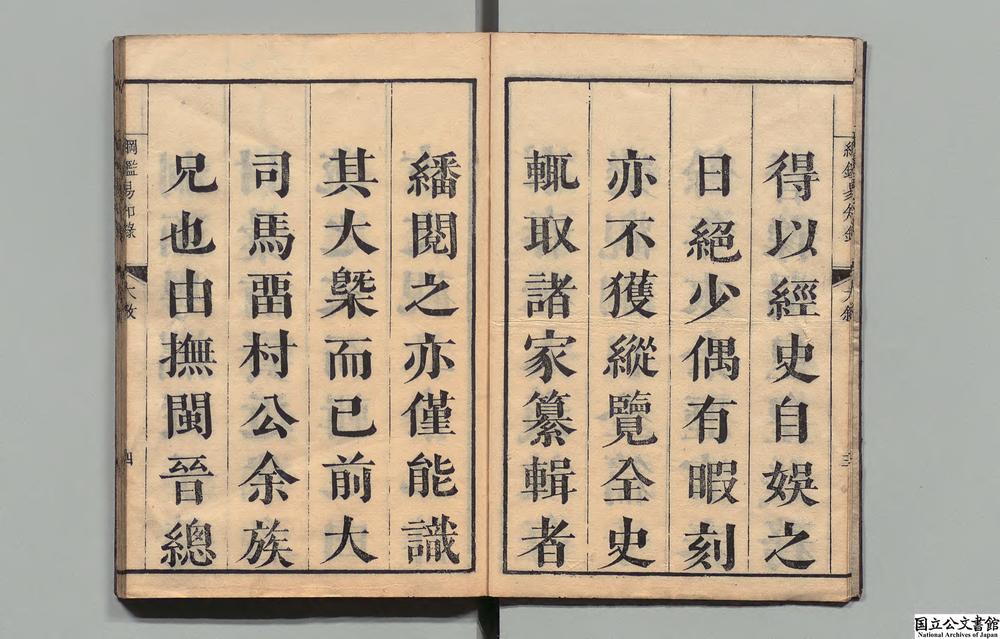 綱鑑易知錄
三
得以經史自娛之
日絕少偶有暇刻
亦不獲縱覽全史
輒取諸家纂輯者
繙閱之亦僅能識
其大槩而已前大
司馬畱村公余族
兄也由撫閩晉總
綱鑑易知錄
四
国立公文書館
National Archives of Japan